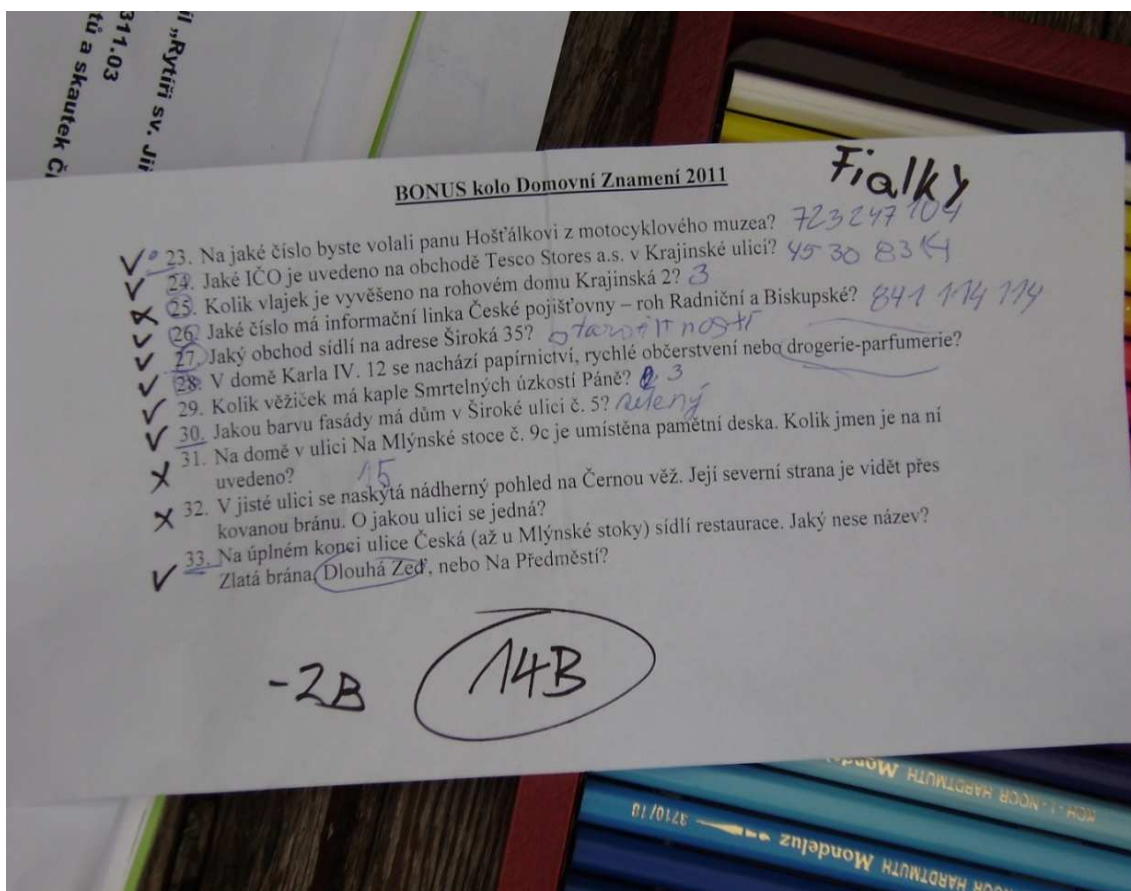 il „Rytíři sv. Jiř
311.03
tů a skautek Č
BONUS kolo Domovní Znamení 2011
Fialky
23. Na jaké číslo byste volali panu Hošťálkovi z motocyklového muzea? 723 247 104
24. Jaké IČO je uvedeno na obchodě Tesco Stores a.s. v Krajinské ulici? 45 30 83 14
25. Kolik vlajek je vyvěšeno na rohovém domu Krajinská 2? 3
26. Jaké číslo má informační linka České pojišťovny – roh Radniční a Biskupské? 841 114 114
27. Jaký obchod sídlí na adrese Široká 35?
28. V domě Karla IV. 12 se nachází papírnictví, rychlé občerstvení nebo drogerie-parfumerie?
29. Kolik věžiček má kaple Smrtelných úzkostí Páně? 3
30. Jakou barvu fasády má dům v Široké ulici č. 5? zelený
31. Na domě v ulici Na Mlýnské stoce č. 9c je umístěna pamětní deska. Kolik jmen je na ní
uvedeno? 15
32. V jisté ulici se naskýtá nádherný pohled na Černou věž. Její severní strana je vidět přes
kovanou bránu. O jakou ulici se jedná?
33. Na úplném konci ulice Česká (až u Mlýnské stoky) sídlí restaurace. Jaký nese název?
Zlatá brána, Dlouhá Zeď, nebo Na Předměstí?
-2B 14B
KOH-I-NOOR HARDTMUTH Mondel
3710/18 Mondeluz HARDTMUTH
NOOR HARDTMUTH Mon